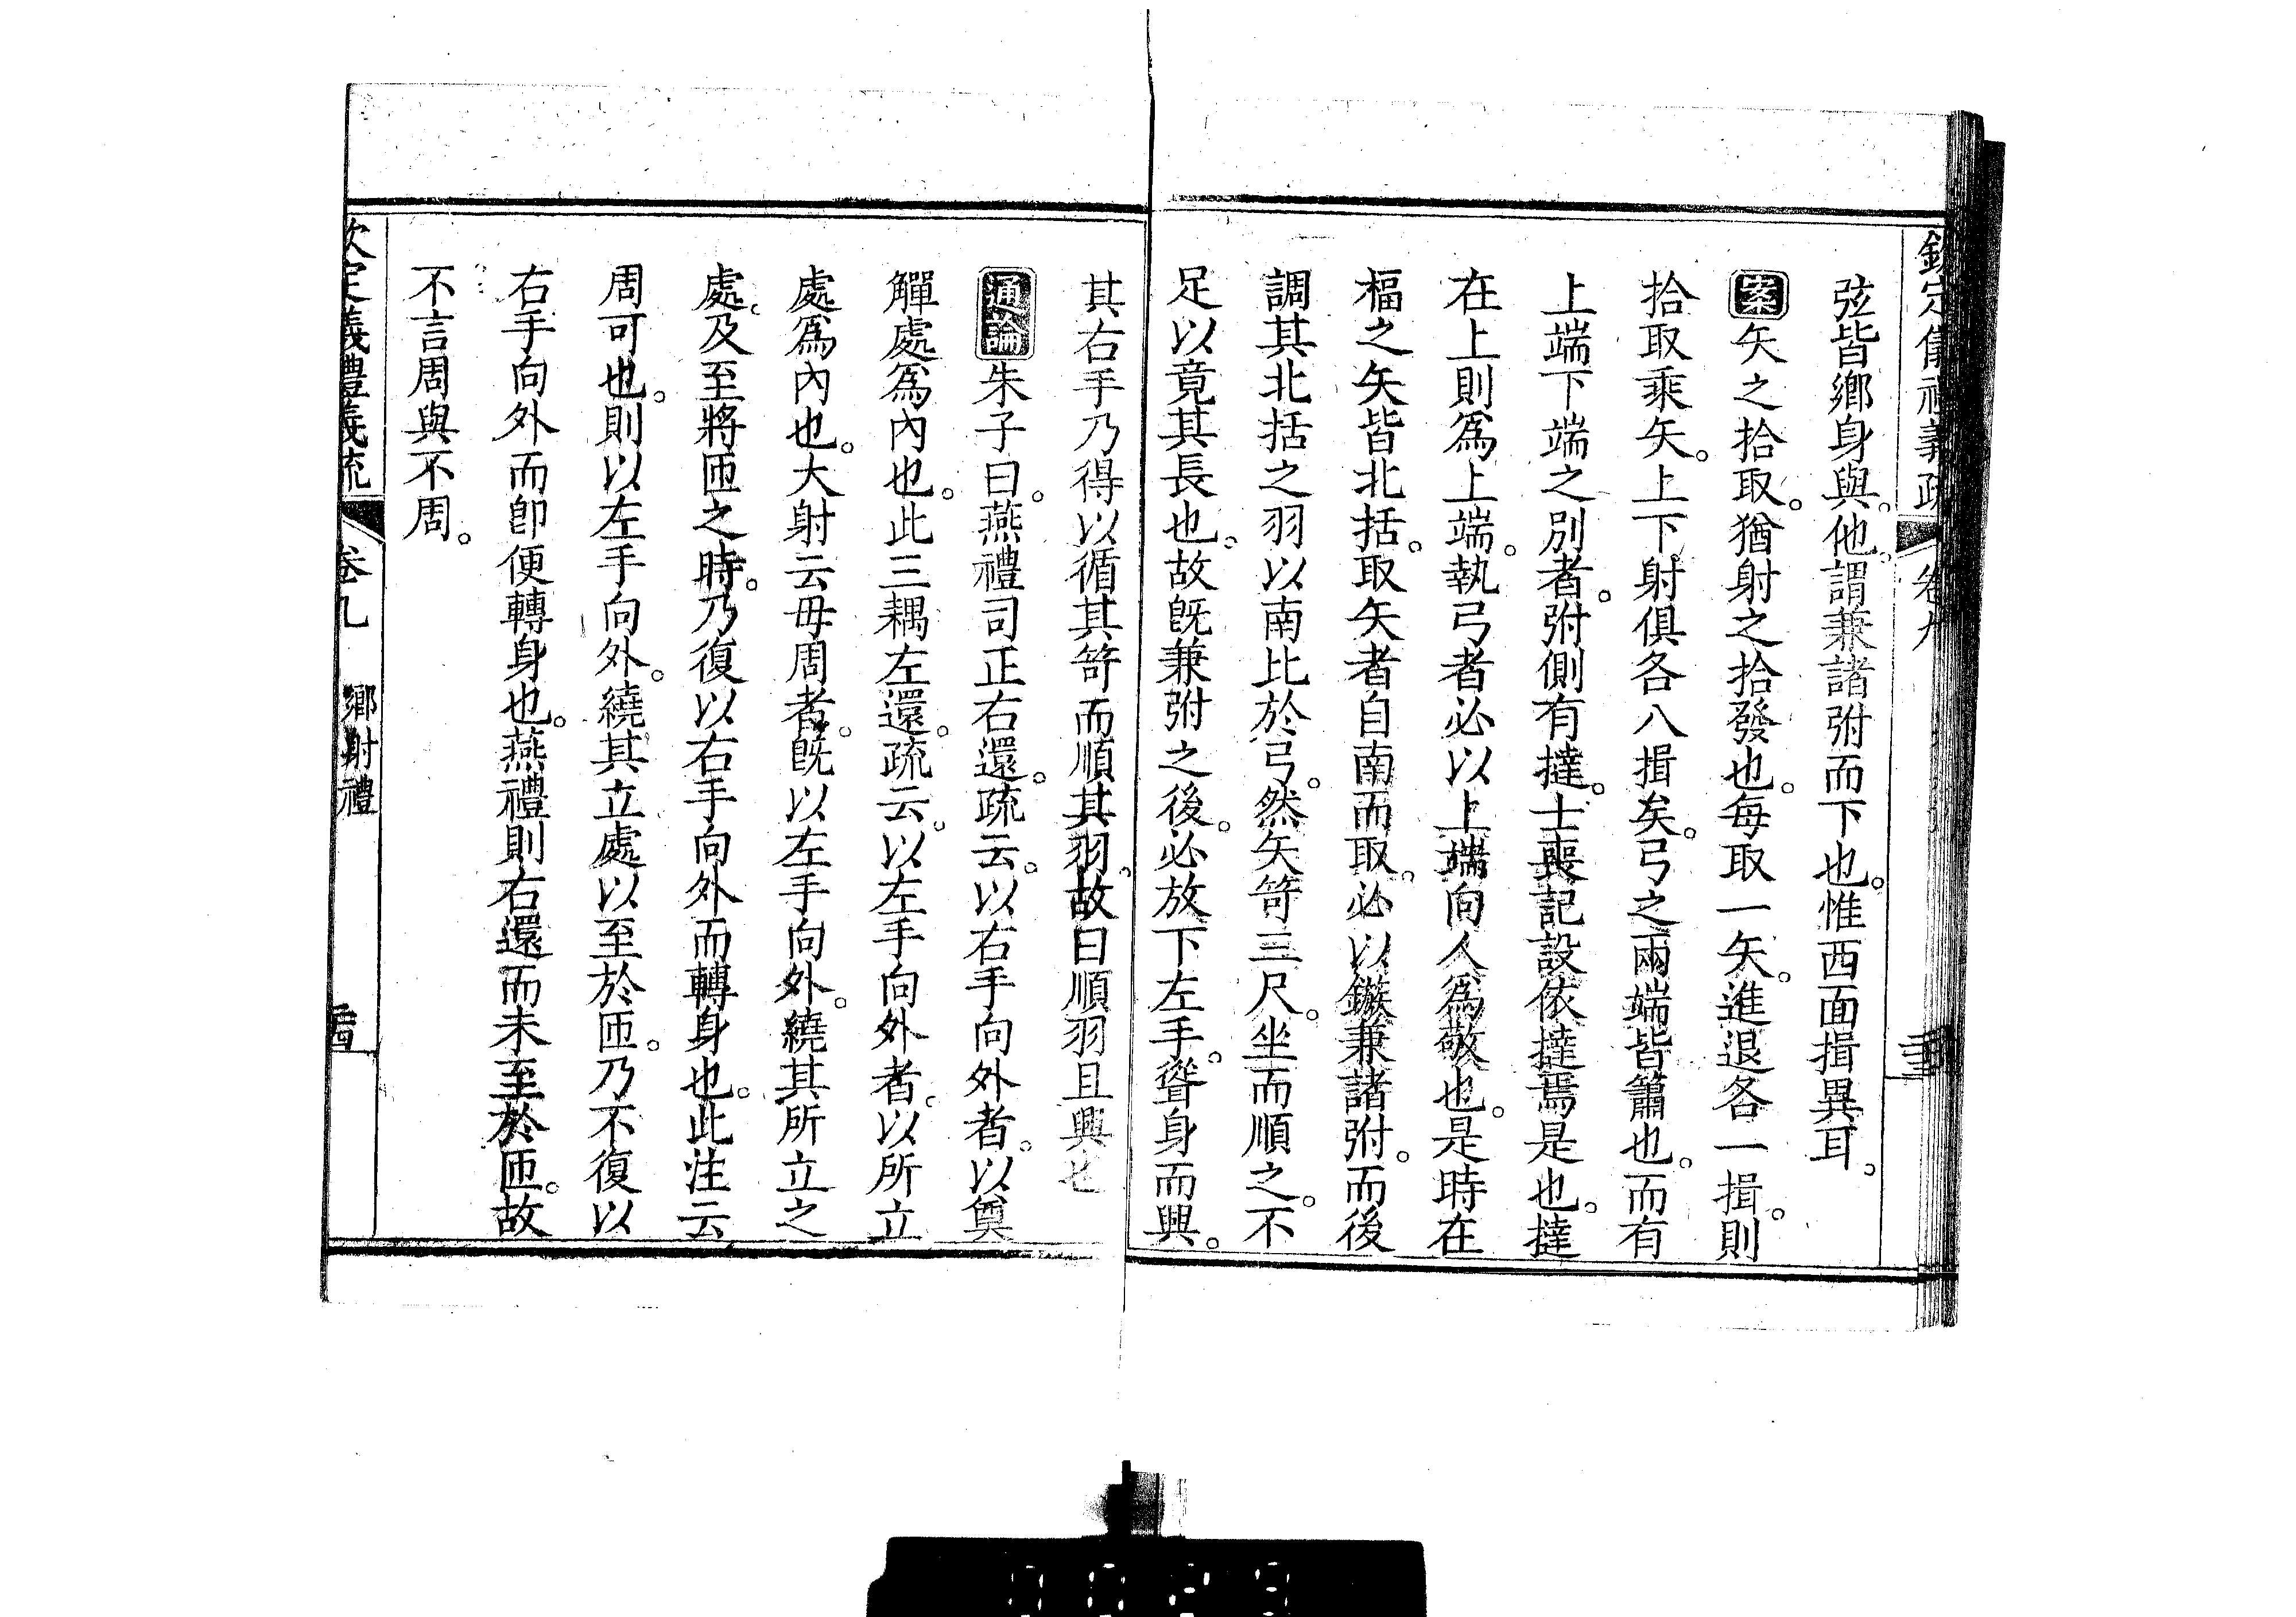 欽定儀禮義疏 卷九
弦皆鄉身與。他。謂兼諸弣而下也。惟西面揖異耳。
案矢之拾取。猶射之拾發也。每取一矢。進退各一揖。則
拾取乘矢。上下射俱各八揖矣。弓之兩端皆簫也。而有
上端下端之別者。弣側有撻。士喪記設依撻焉是也。撻
在上則爲上端。執弓者必以上端向人爲敬也。是時在
楅之矢皆北括。取矢者自南而取。必以鏃兼諸弣。而後
調其北括之羽以南比於弓。然矢笴三尺。坐而順之。不
足以竟其長也。故旣兼弣之後。必放下左手。聳身而興。
其右手乃得以循其笴而順其羽。故曰順羽且興也
通論朱子曰。燕禮司正右還。疏云。以右手向外者。以奠
觶處爲內也。此三耦左還。疏云。以左手向外者。以所立
處爲內也。大射云毋周者。旣以左手向外。繞其所立之
處。及至將匝之時。乃復以右手向外而轉身也。此注云
周可也。則以左手向外。繞其立處以至於匝。乃不復以
右手向外而卽便轉身也。燕禮則右還而未至於匝。故
不言周與不周。
欽定義禮義疏 卷九 鄉射禮